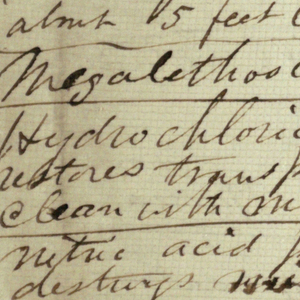 about 15 feet
Megalethos
Hydrochloric
restores transp
Clean with
nitric acid
destroys